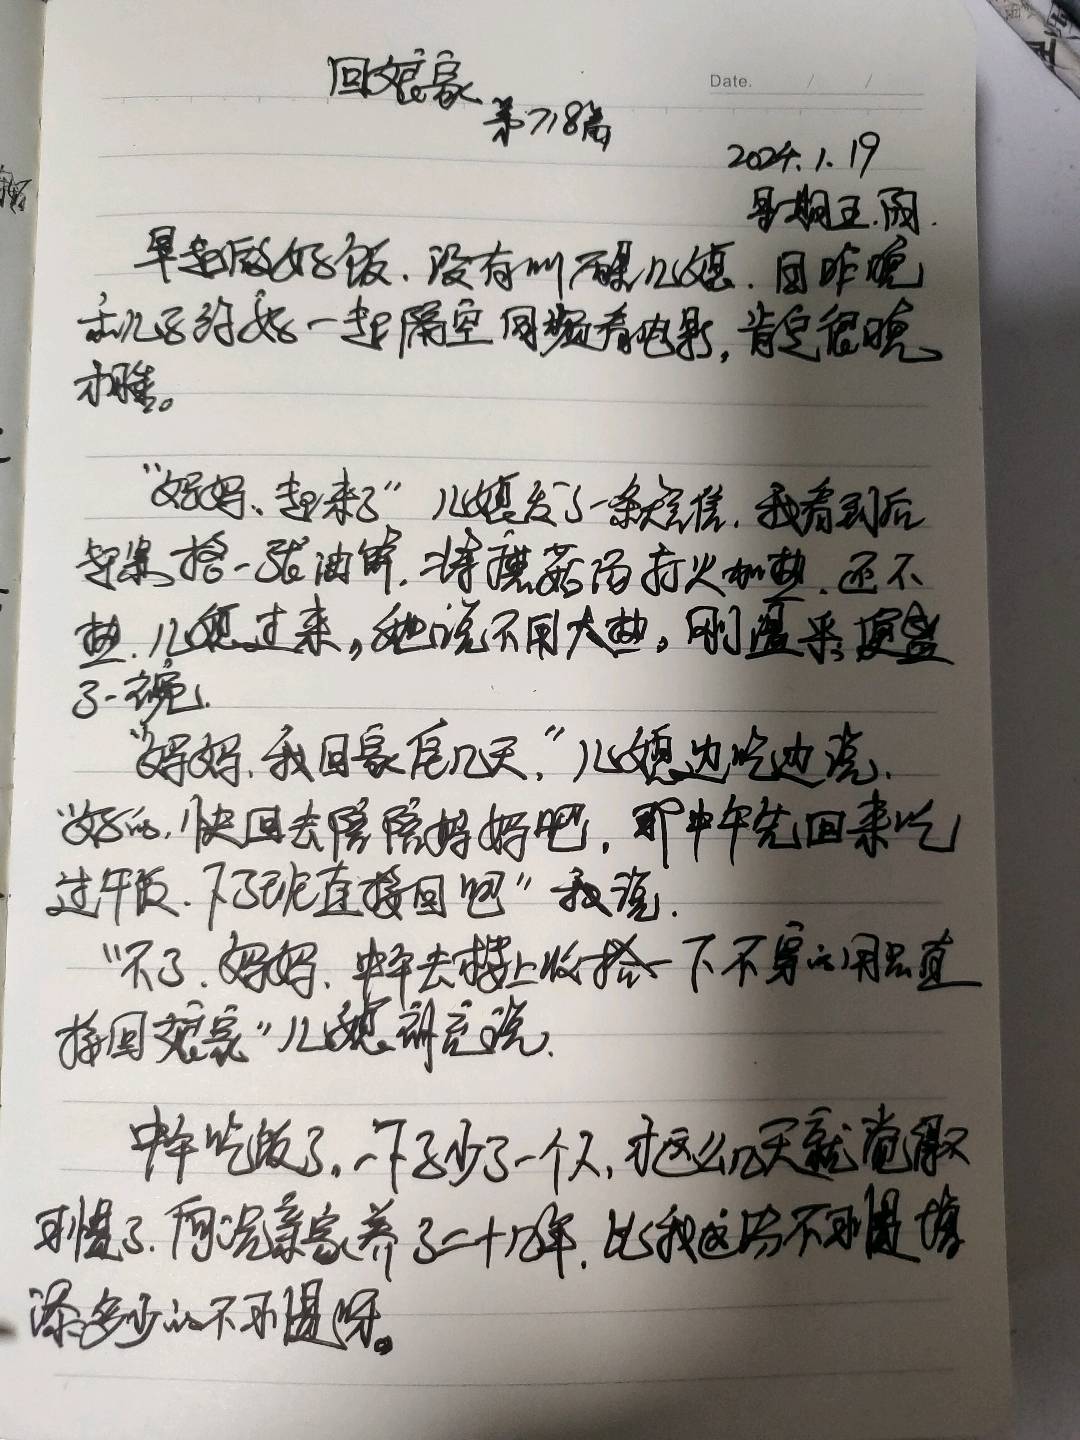 回娘家
Date. / /
第718篇
2024.1.19
星期五.雨.
早起做好饭.没有叫醒儿媳.因昨晚
和儿子约好一起隔空同频看电影,肯定很晚
才睡。
"妈妈、起来了"儿媳发了一条短信.我看到后
赶紧烙一张油饼.将蘑菇汤打火加热.还不
热.儿媳过来,她说不用大热。刚温乎便盛
了一碗.
"妈妈.我回家住几天,"儿媳边吃边说.
"好的,快回去陪陪妈妈吧,那中午先回来吃
过午饭.下了班直接回吧"我说.
"不了.妈妈.中午去楼上收拾一下不穿的用品直
接回娘家"儿媳补充说.
中午吃饭了,一下子少了一个人,才这么几天就觉得不
习惯了.何况亲家养了二十几年.比我这份不习惯增
添多少的不习惯呀。